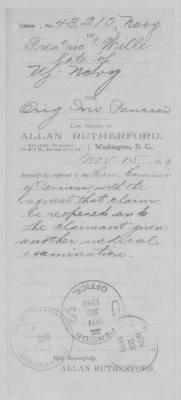 Claim No. 43,210, Navy
OF
Fred'ric Wille
late of
US. Navy
FOR
Orig Inv. Pension
LAW OFFICE OF
ALLAN RUTHERFORD,
ATLANTIC BUILDING,
Washington, D. C.,
Nov. 15
Respectfully referred to the Hon. Commis'r
of Pensions with the
request that claim
be reopened and
the claimant given
another medical
examination.
PENSION OFFICE
NOV
20
1889
Very Respectfully,
ALLAN RUTHERFORD.